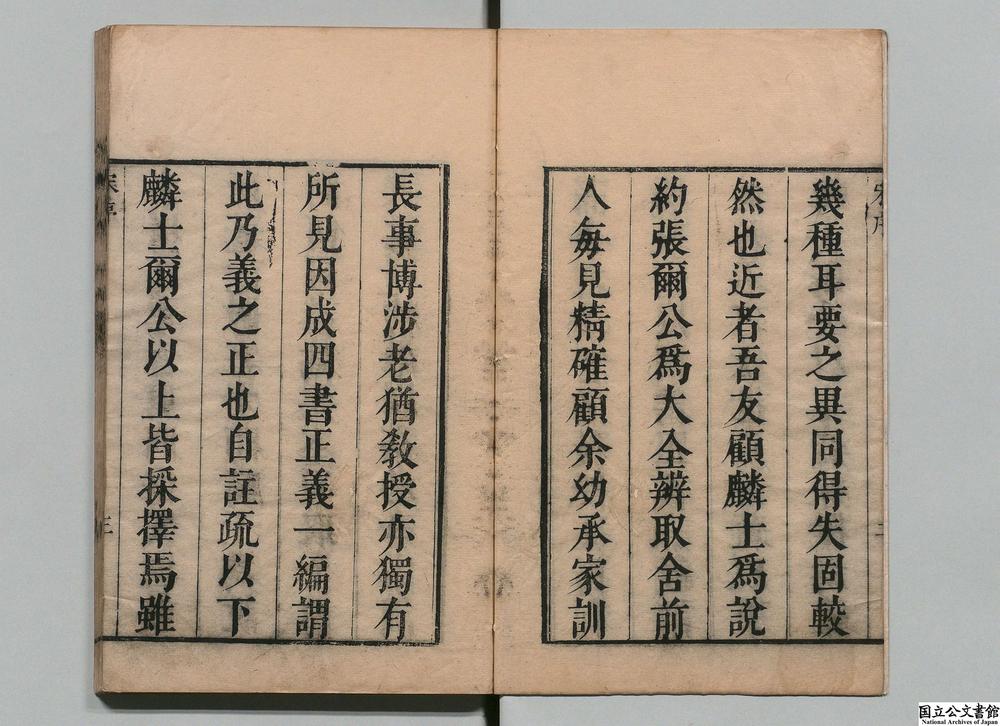 幾種耳要之異同得失固較
然也近者吾友顧麟士爲說
約張爾公爲大全辨取舍前
人每見精確顧余幼承家訓
長事博涉老猶敎授亦獨有
所見因成四書正義一編謂
此乃義之正也自註疏以下
麟士爾公以上皆採擇焉雖
国立公文書館
National Archives of Japan